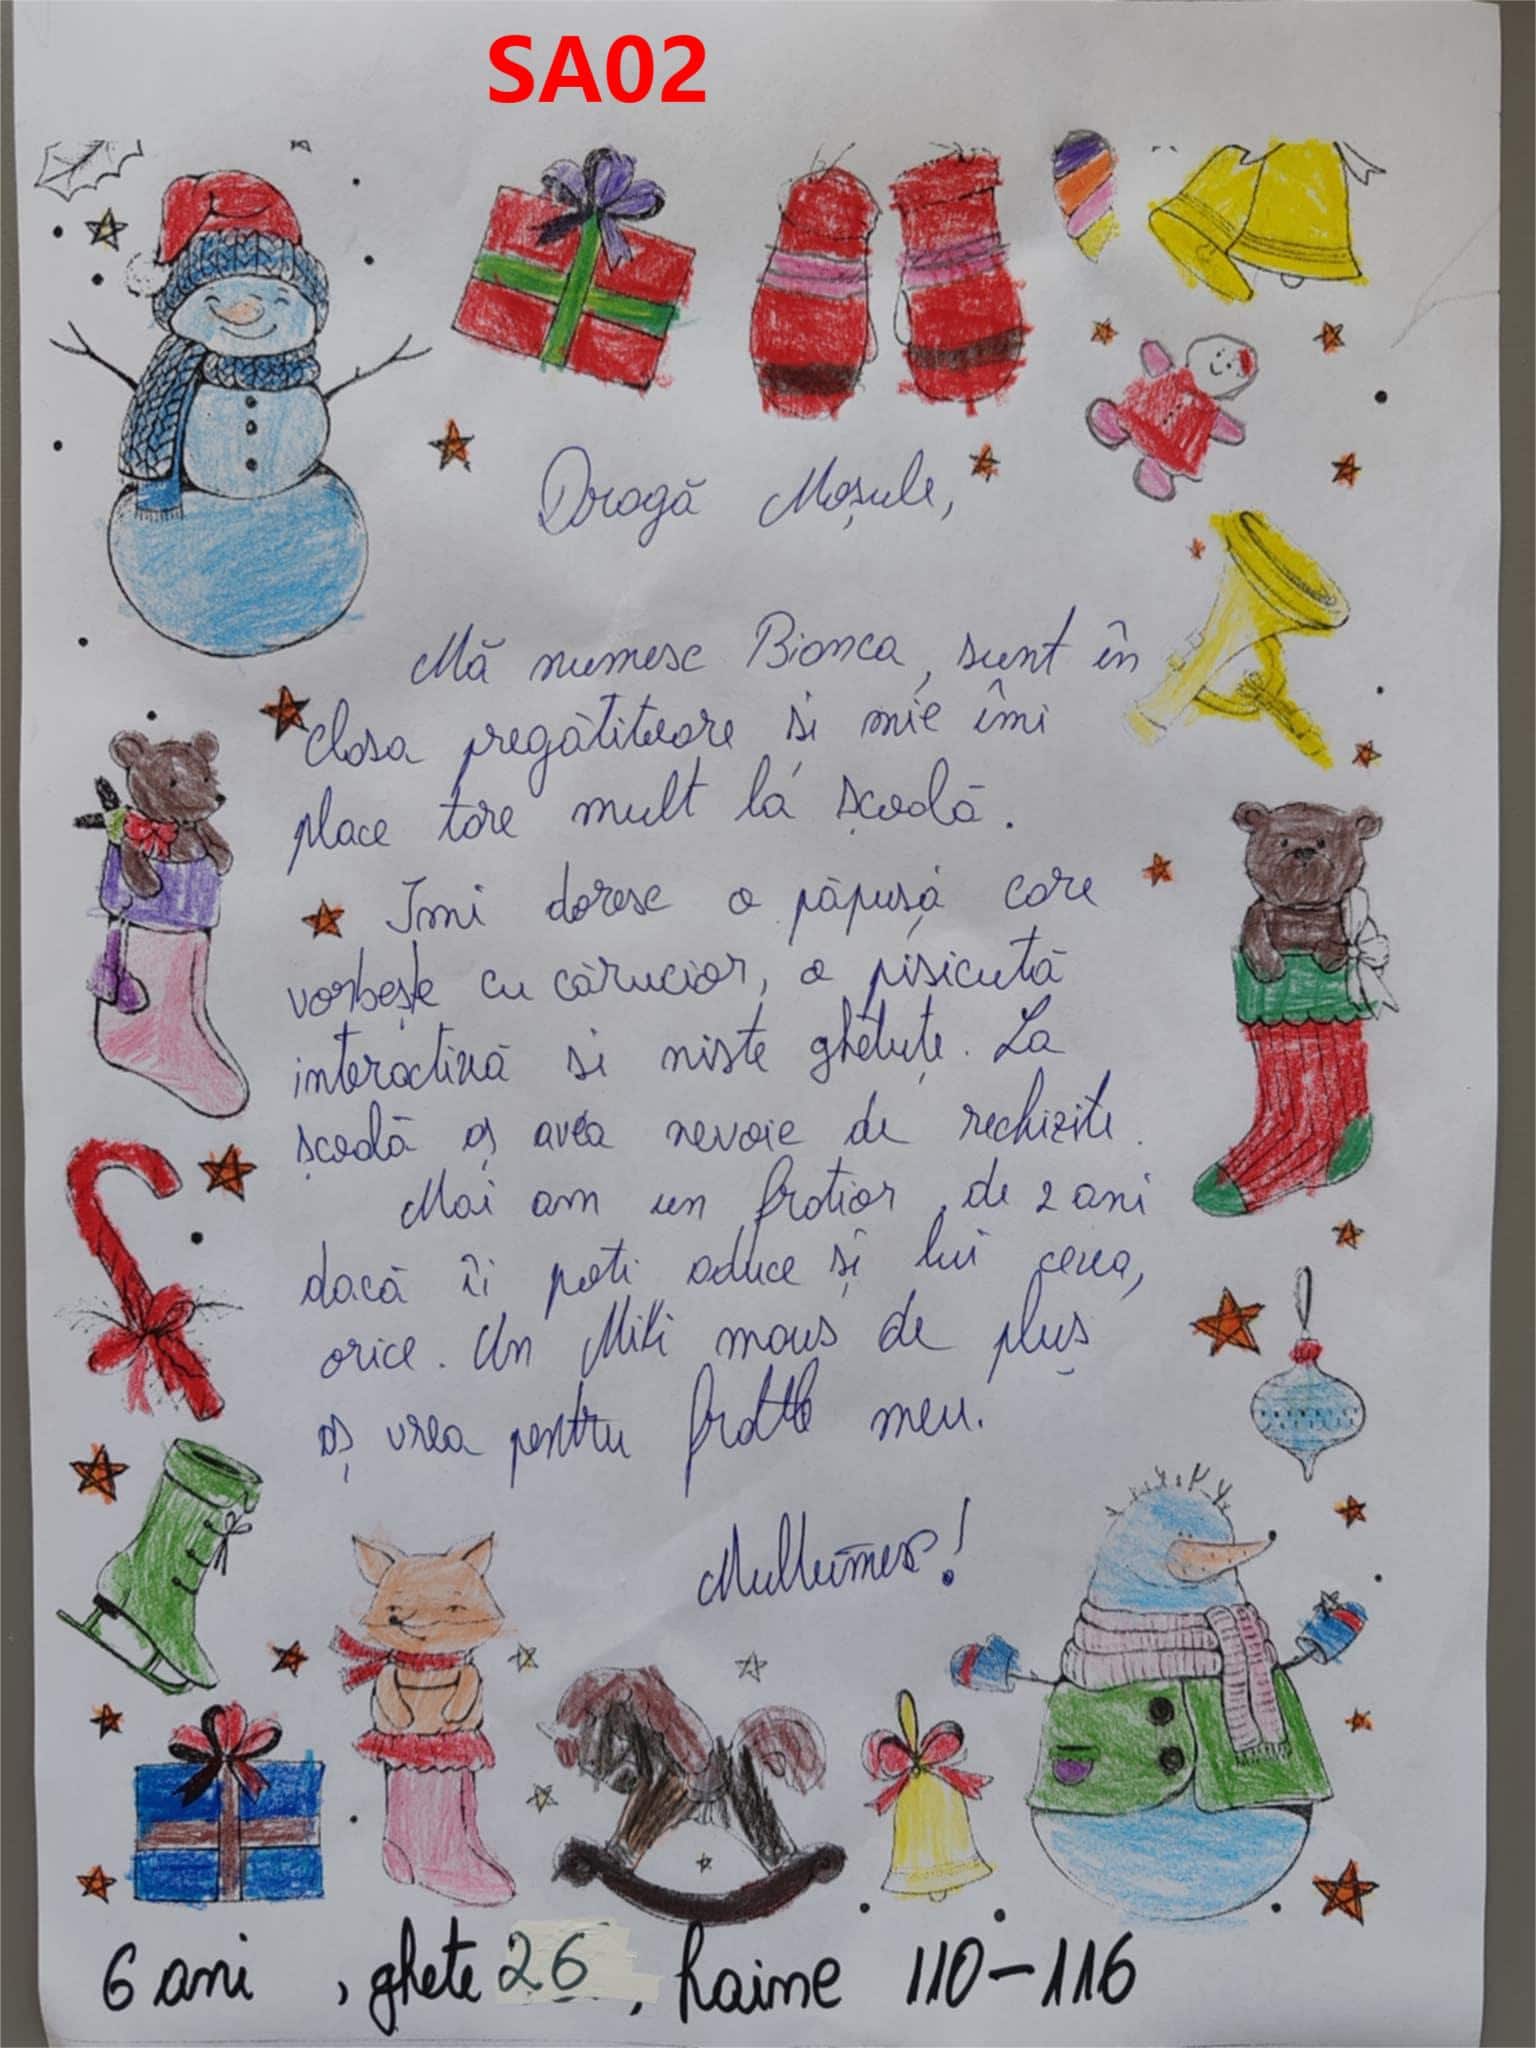 SA02
Dragă Moșule,
Mă numesc Bianca, sunt în
clasa pregătitoare și mie îmi
place tare mult la școală.
Imi doresc o păpușă care
vorbește cu cărucior, o pisicută
interactivă si niste ghetuțe. La
școală aș avea nevoie de rechizite.
Mai am un frătior de 2 ani
dacă îi poti aduce și lui ceva,
orice. Un Miki maus de pluș
aș vrea pentru fratele meu.
Mulțumesc!
6 ani, ghete 26, haine 110-116